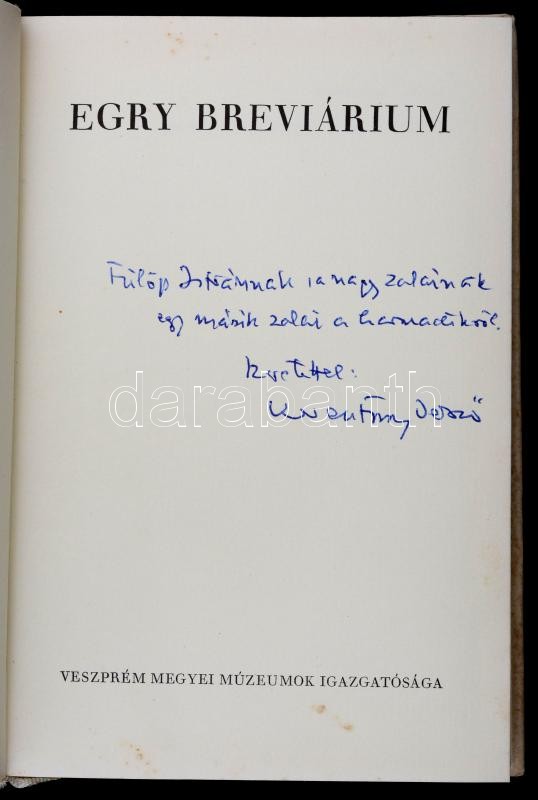 EGRY BREVIÁRIUM
Fülöp Istvánnak, a nagy zalainak
egy másik zalai a harmadikról.
Szeretettel:
Keresztury Dezső
darabanth
VESZPRÉM MEGYEI MÚZEUMOK IGAZGATÓSÁGA